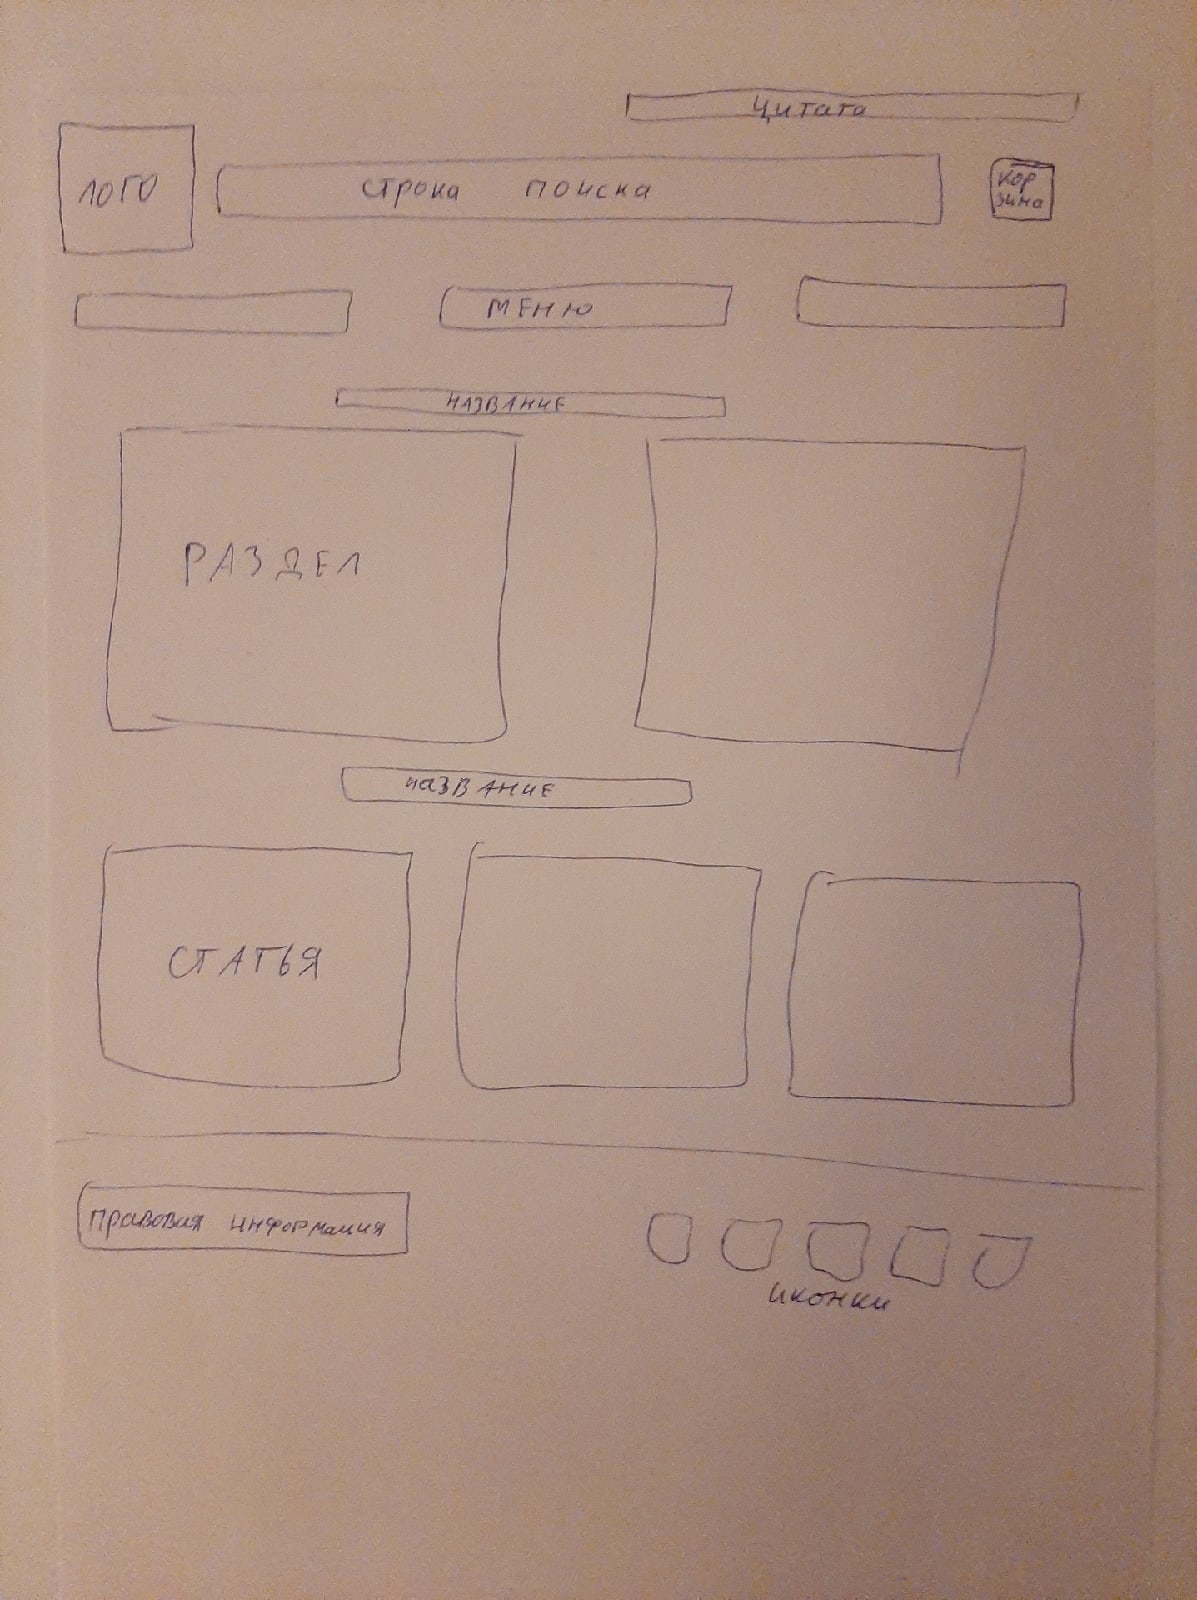 Цитата
ЛОГО
строка поиска
кор
зина
МЕНЮ
НАЗВАНИЕ
РАЗДЕЛ
НАЗВАНИЕ
СТАТЬЯ
правовая информация
иконки